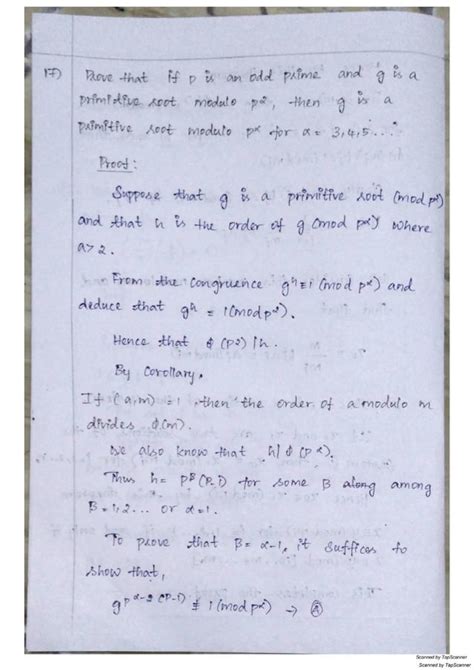 17) Prove that if p is an odd prime and g is a
primitive root modulo p², then g is a
primitive root modulo p^α for α = 3,4,5...
Proof:
Suppose that g is a primitive root (mod p²)
and that h is the order of g (mod p^α) where
α>2.
From the congruence g^h ≡ 1 (mod p^α) and
deduce that g^h ≡ 1 (mod p²).
Hence that φ(p²) | h.
By Corollary,
If (a,m) = 1, then the order of a modulo m
divides φ(m).
We also know that h | φ(p^α).
Thus h = p^β(p-1) for some β along among
β = 1,2... or α-1.
To prove that β = α-1, it suffices to
show that,
g^p^α-2 (p-1) ≢ 1 (mod p^α) →
Scanned by TapScanner
Scanned by TapScanner